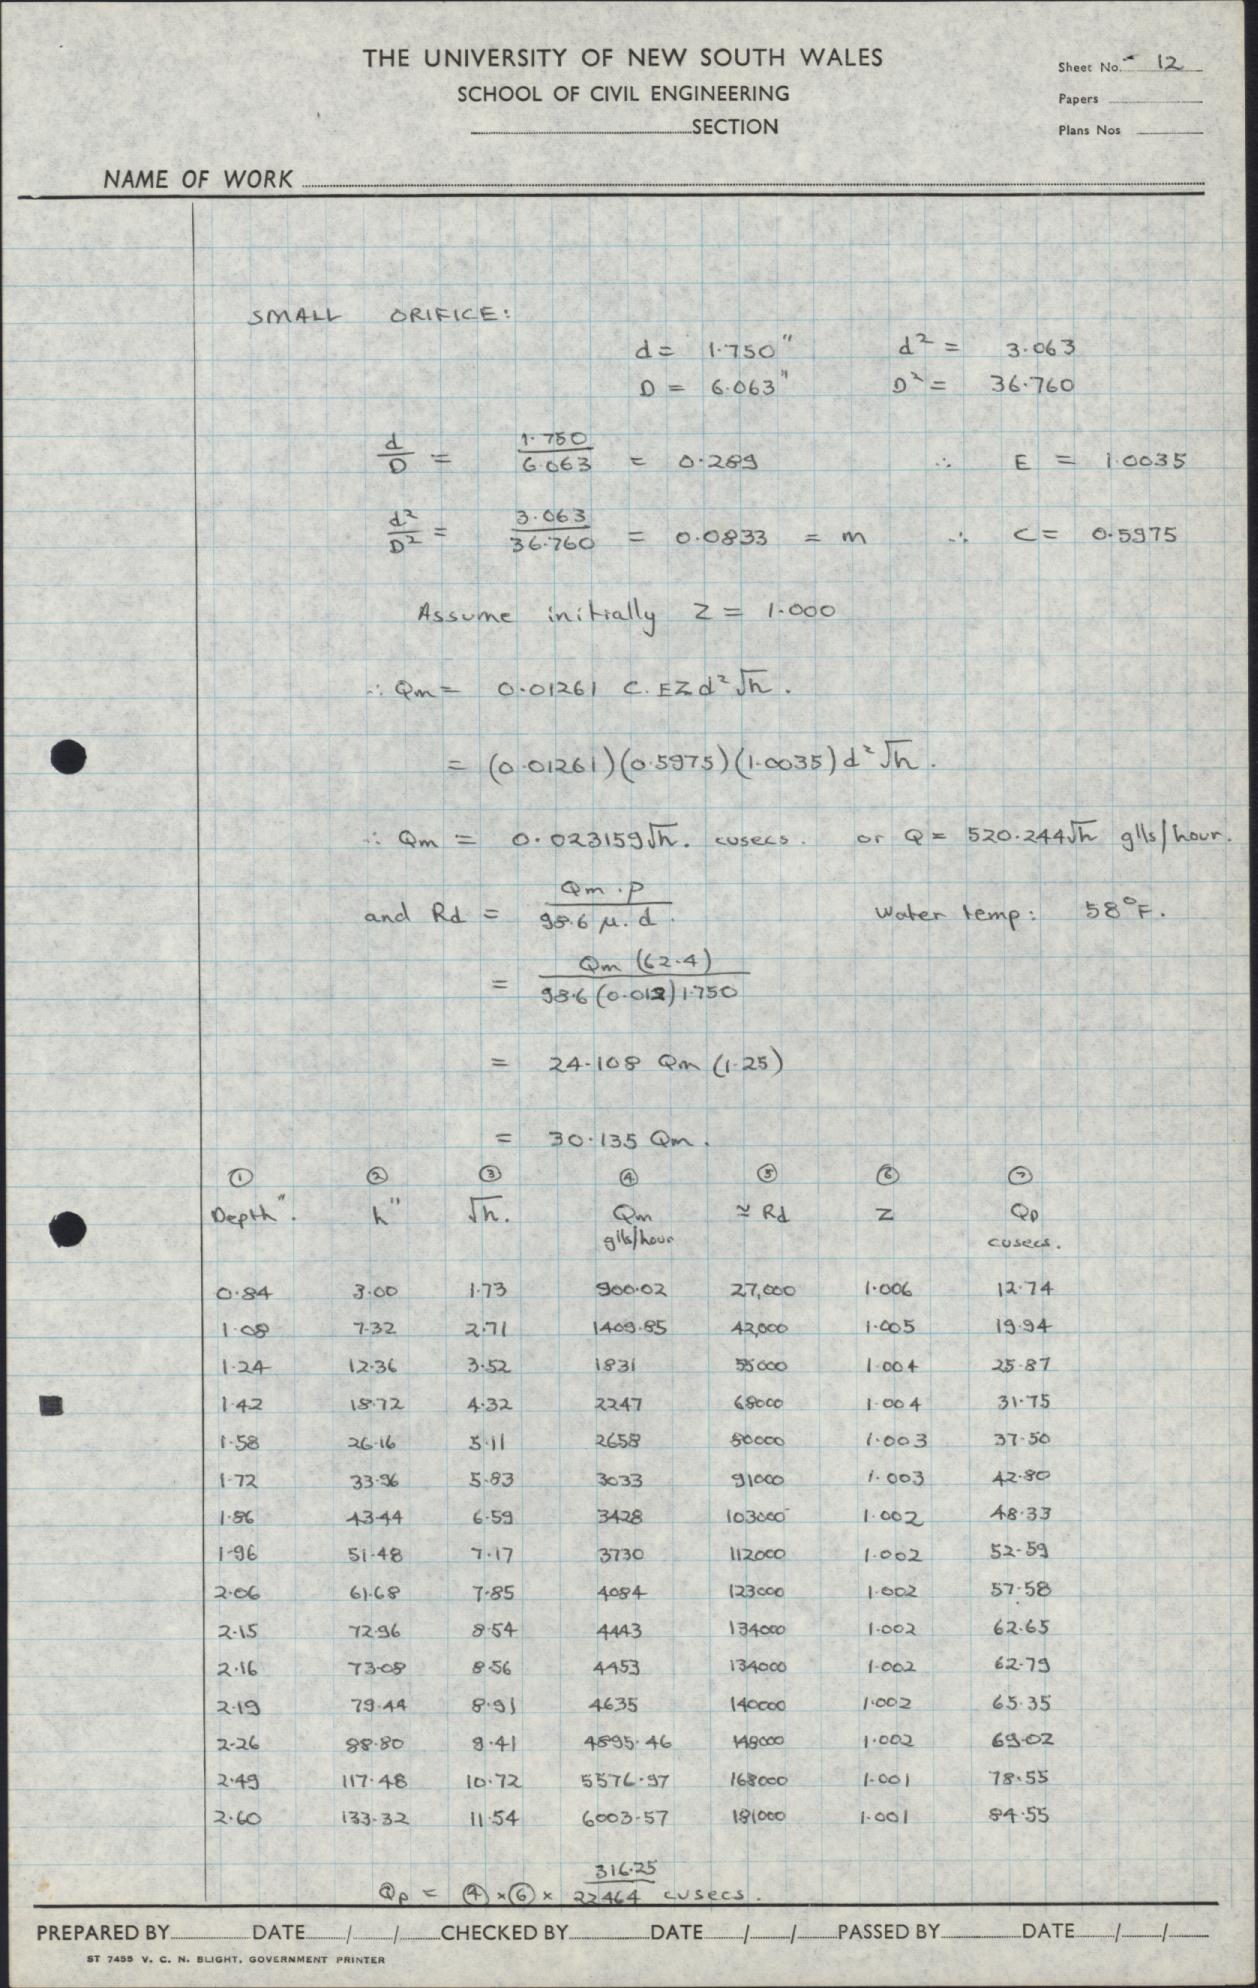 THE UNIVERSITY OF NEW SOUTH WALES
SCHOOL OF CIVIL ENGINEERING
SECTION
Sheet No. 12
Papers
Plans Nos
NAME OF WORK
SMALL ORIFICE:
d = 1.750" d² = 3.063
D = 6.063" D² = 36.760
d/D = 1.750/6.063 = 0.289 ∴ E = 1.0035
d²/D² = 3.063/36.760 = 0.0833 = m ∴ C = 0.5975
Assume initially Z = 1.000
∴ Qm = 0.01261 C.EZd²√h.
= (0.01261)(0.5975)(1.0035)d²√h.
∴ Qm = 0.023159√h. cusecs. or Q = 520.244√h glls/hour.
and Rd = Qm.p/98.6 μ.d. Water temp: 58°F.
= Qm (62.4)/98.6(0.012)1.750
= 24.108 Qm (1.25)
= 30.135 Qm.
① ② ③ ④ ⑤ ⑥ ⑦
Depth". h" √h. Qm ≃ Rd Z Qp
glls/hour cusecs.
0.84 3.00 1.73 900.02 27,000 1.006 12.74
1.08 7.32 2.71 1409.85 42,000 1.005 19.94
1.24 12.36 3.52 1831 55000 1.004 25.87
1.42 18.72 4.32 2247 68000 1.004 31.75
1.58 26.16 5.11 2658 80000 1.003 37.50
1.72 33.96 5.83 3033 91000 1.003 42.80
1.86 43.44 6.59 3428 103000 1.002 48.33
1.96 51.48 7.17 3730 112000 1.002 52.59
2.06 61.68 7.85 4084 123000 1.002 57.58
2.15 72.96 8.54 4443 134000 1.002 62.65
2.16 73.08 8.56 4453 134000 1.002 62.79
2.19 79.44 8.91 4635 140000 1.002 65.35
2.26 88.80 9.41 4895.46 148000 1.002 69.02
2.49 117.48 10.72 5576.97 168000 1.001 78.55
2.60 133.32 11.54 6003.57 181000 1.001 84.55
Qp = ④ × ⑥ × 316.25/22464 cusecs.
PREPARED BY DATE / / CHECKED BY DATE / / PASSED BY DATE / /
ST 7455 V. C. N. BLIGHT, GOVERNMENT PRINTER